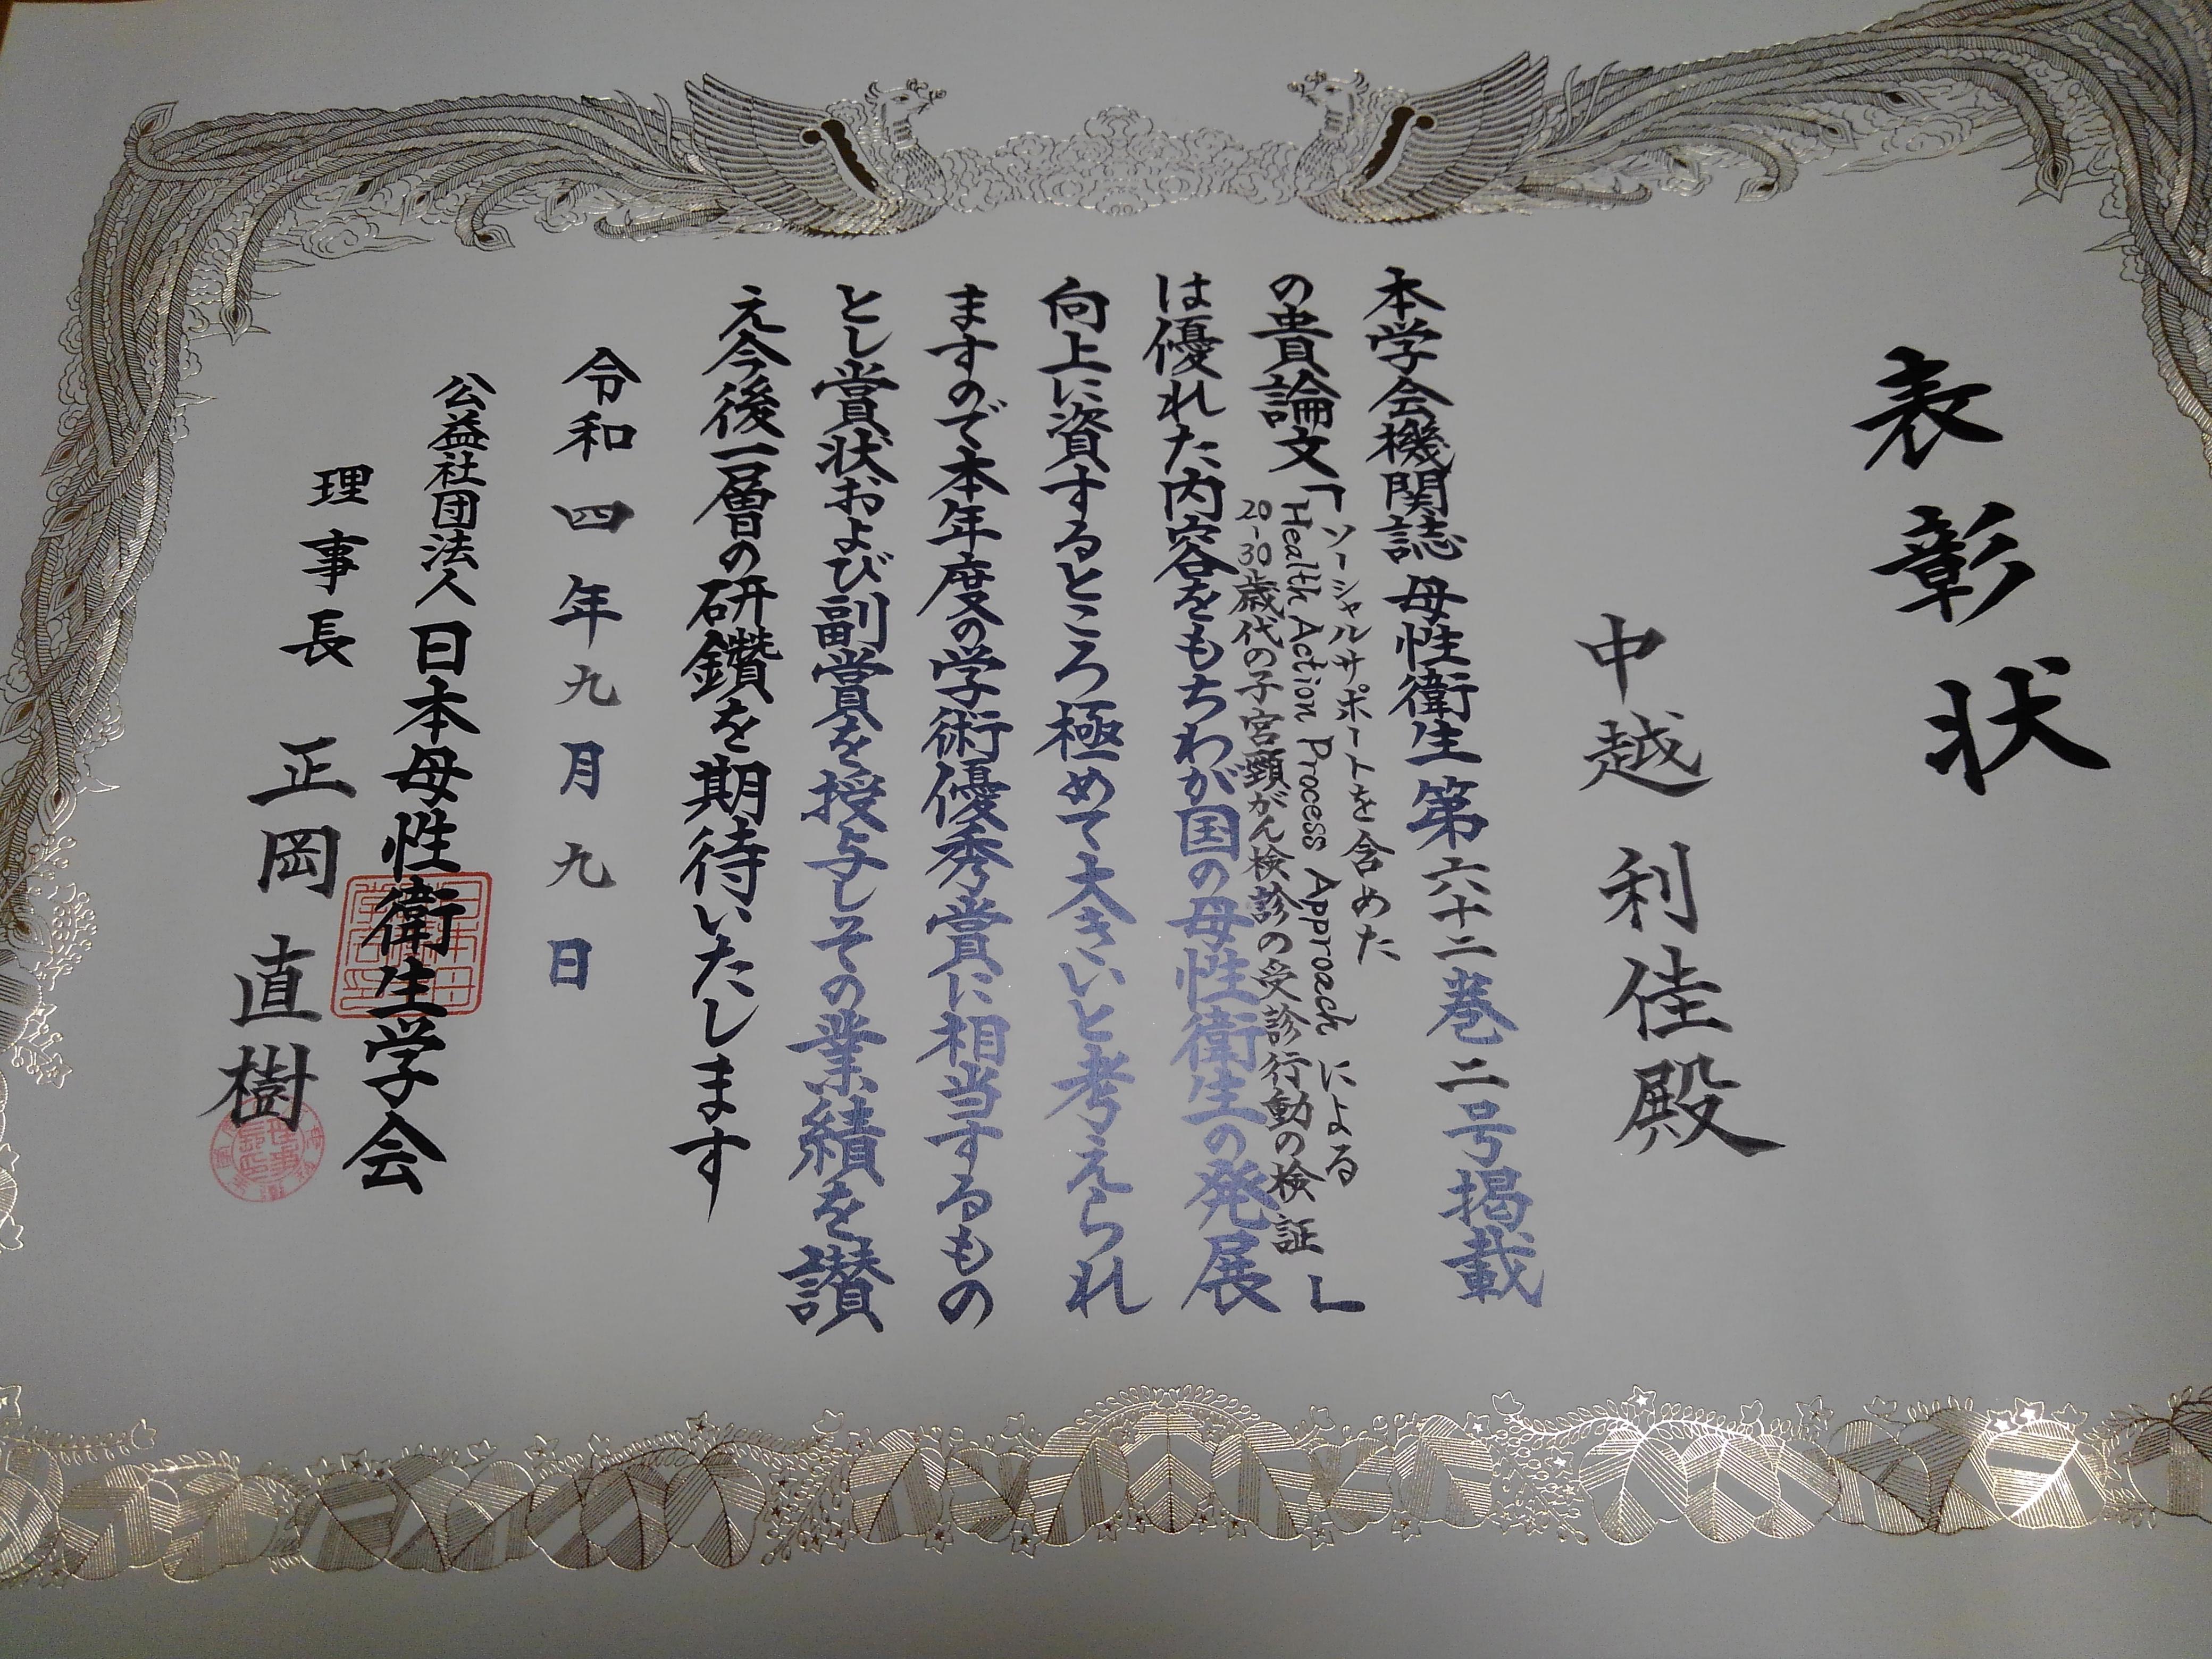 表彰状
中越 利佳 殿
本学会機関誌 母性衛生 第六十二巻 二号掲載
の貴論文「ソーシャルサポートを含めた
Health Action Process Approach による
20-30歳代の子宮頸がん検診の受診行動の検証」
は優れた内容をもちわが国の母性衛生の発展
向上に資するところ極めて大きいと考えられ
ますので本年度の学術優秀賞に相当するもの
とし賞状および副賞を授与しその業績を讃
え今後一層の研鑽を期待いたします
令和四年九月九日
公益社団法人 日本母性衛生学会
理事長 正岡 直樹